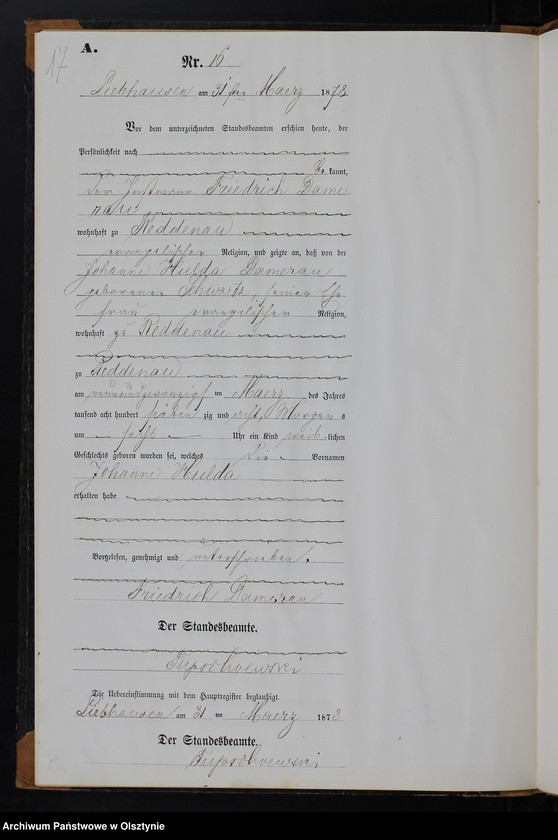 17
A.
Nr. 16
Liebhausen am 31ten Maerz 1878
Vor dem unterzeichneten Standesbeamten erschien heute, der
Persönlichkeit nach
be kannt,
der Instmann Friedrich Dame
rau
wohnhaft zu Reddenau
evangelischer Religion, und zeigte an, daß von der
Johanne Hulda Damerau
geborenen Schwartz, seiner Ehe
frau evangelischer Religion,
wohnhaft zu Reddenau
zu Reddenau
am neunundzwanzigsten Maerz des Jahres
tausend acht hundert sieben zig und acht, Morgens
um sechs Uhr ein Kind weib lichen
Geschlechts geboren worden sei, welches die Vornamen
Johanne Hulda
erhalten habe
Vorgelesen, genehmigt und unterschrieben.
Friedrich Damerau
Der Standesbeamte.
Die Uebereinstimmung mit dem Hauptregister beglaubigt.
Liebhausen am 31 ten Maerz 1878
Der Standesbeamte.
Archiwum Państwowe w Olsztynie